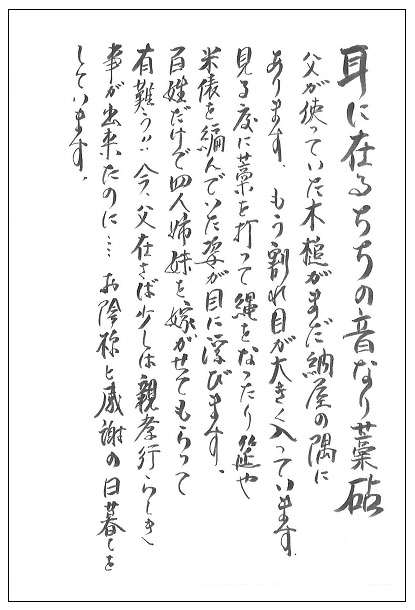 耳に在るちちの音なり藁砧
父が使っていた木槌がまだ納屋の隅に
あります。もう割れ目が大きく入っています。
見る度に藁を打って縄をなったり筵や
米俵を編んでいた姿が目に浮びます。
百姓だけで四人姉妹を嫁がせてもらって
有難う!! 今、父在さば少しは親孝行らしき
事が出来たのに… お陰様と感謝の日暮しを
しています。